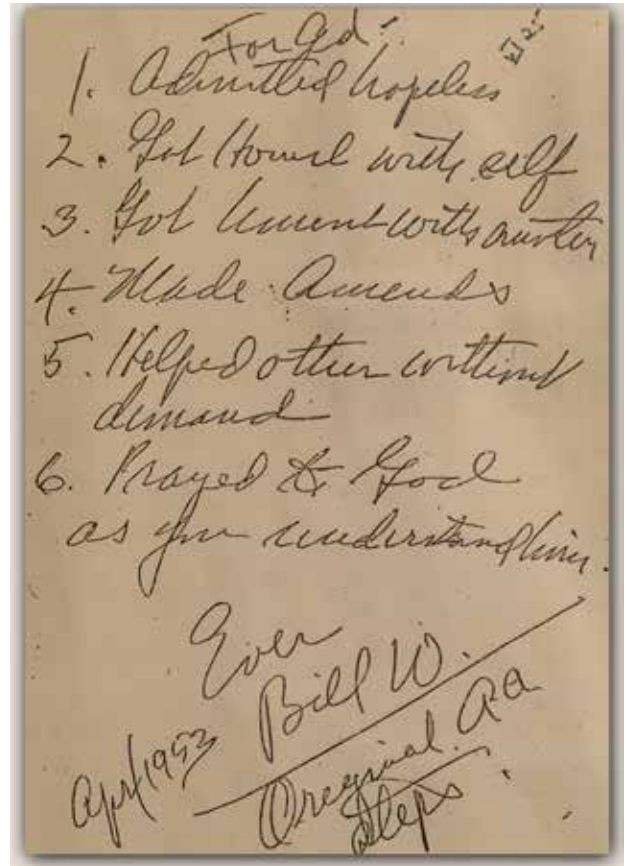 For Ed:
1. Admitted hopeless
2. Got Honest with self
3. Got honest with another
4. Made Amends
5. Helped other without
demand
6. Prayed to God
as you understand him.
Ever
Bill W.
Apr/1953
Original AA
Steps.